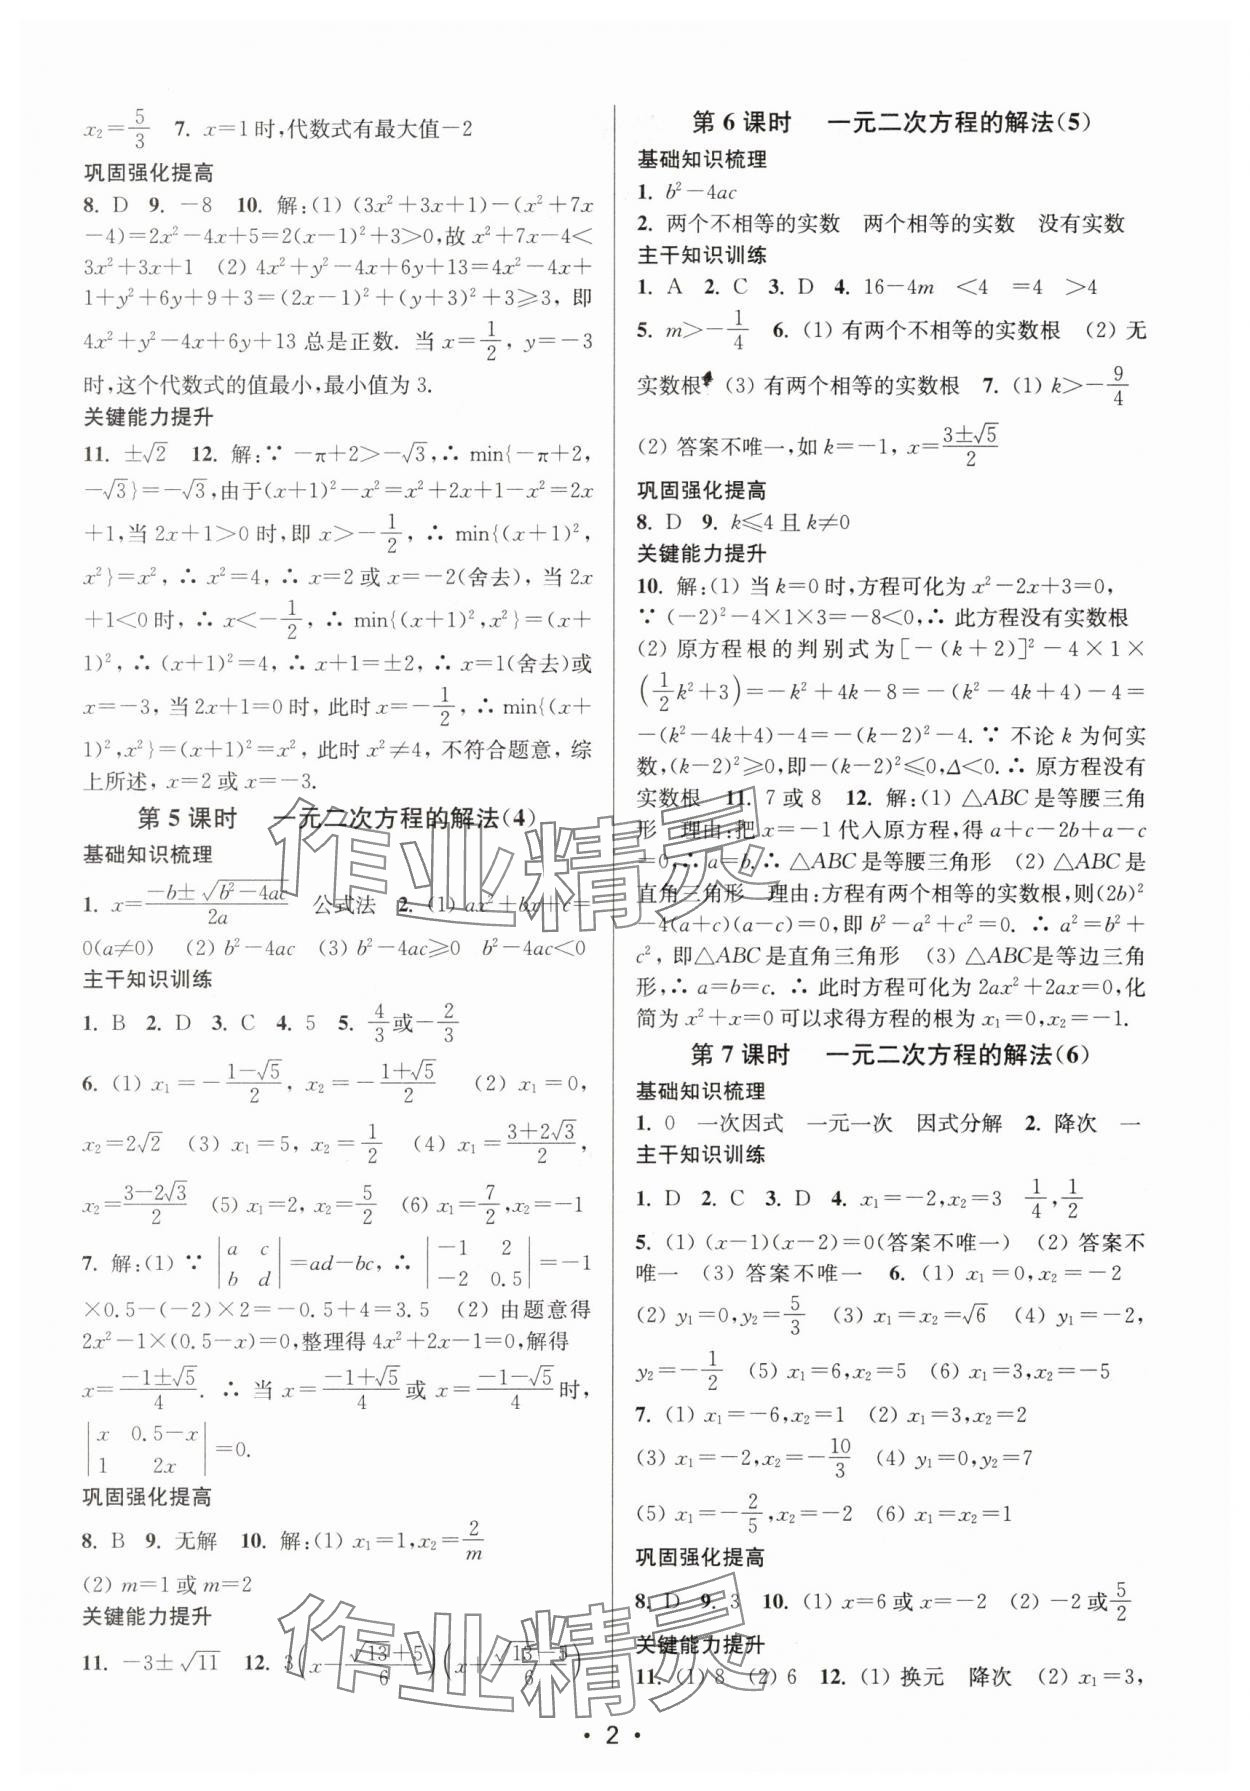 x₂=5/3  7. x=1时,代数式有最大值-2
巩固强化提高
8. D  9. -8  10. 解:(1) (3x²+3x+1)-(x²+7x
-4)=2x²-4x+5=2(x-1)²+3>0,故 x²+7x-4<
3x²+3x+1  (2) 4x²+y²-4x+6y+13=4x²-4x+
1+y²+6y+9+3=(2x-1)²+(y+3)²+3≥3, 即
4x²+y²-4x+6y+13 总是正数. 当 x=1/2, y=-3
时,这个代数式的值最小,最小值为 3.
关键能力提升
11. ±√2  12. 解:∵ -π+2>-√3,∴ min{-π+2,
-√3}=-√3,由于(x+1)²-x²=x²+2x+1-x²=2x
+1,当 2x+1>0 时,即 x>-1/2, ∴ min{(x+1)²,
x²}=x², ∴ x²=4, ∴ x=2 或 x=-2(舍去), 当 2x
+1<0 时, ∴ x<-1/2, ∴ min{(x+1)²,x²}=(x+
1)², ∴ (x+1)²=4, ∴ x+1=±2, ∴ x=1(舍去)或
x=-3, 当 2x+1=0 时, 此时 x=-1/2, ∴ min{(x+
1)²,x²}=(x+1)²=x², 此时 x²≠4, 不符合题意, 综
上所述, x=2 或 x=-3.
第 5 课时  一元二次方程的解法(4)
基础知识梳理
1. x=(-b±√(b²-4ac))/2a  公式法  2. (1) ax²+bx+c=
0(a≠0)  (2) b²-4ac  (3) b²-4ac≥0  b²-4ac<0
主干知识训练
1. B  2. D  3. C  4. 5  5. 4/3或-2/3
6. (1) x₁=-(1-√5)/2, x₂=-(1+√5)/2  (2) x₁=0,
x₂=2√2  (3) x₁=5, x₂=1/2  (4) x₁=(3+2√3)/2,
x₂=(3-2√3)/2  (5) x₁=2, x₂=5/2  (6) x₁=7/2,x₂=-1
7. 解:(1) ∵ |a c; b d|=ad-bc, ∴ |-1 2; -2 0.5|=-1
×0.5-(-2)×2=-0.5+4=3.5  (2) 由题意得
2x²-1×(0.5-x)=0,整理得 4x²+2x-1=0,解得
x=(-1±√5)/4. ∴ 当 x=(-1+√5)/4 或 x=(-1-√5)/4 时,
|x 0.5-x; 1 2x|=0.
巩固强化提高
8. B  9. 无解  10. 解:(1) x₁=1,x₂=2/m
(2) m=1 或 m=2
关键能力提升
11. -3±√11  12. 3(x-(√13+5)/6)(x+(√13-5)/6)
第 6 课时  一元二次方程的解法(5)
基础知识梳理
1. b²-4ac
2. 两个不相等的实数  两个相等的实数  没有实数
主干知识训练
1. A  2. C  3. D  4. 16-4m  <4  =4  >4
5. m>-1/4  6. (1) 有两个不相等的实数根  (2) 无
实数根  (3) 有两个相等的实数根  7. (1) k>-9/4
(2) 答案不唯一,如 k=-1, x=(3±√5)/2
巩固强化提高
8. D  9. k≤4 且 k≠0
关键能力提升
10. 解:(1) 当 k=0 时,方程可化为 x²-2x+3=0,
∵ (-2)²-4×1×3=-8<0,∴ 此方程没有实数根
(2) 原方程根的判别式为[-(k+2)]²-4×1×
(1/2k²+3)=-k²+4k-8=-(k²-4k+4)-4=
-(k²-4k+4)-4=-(k-2)²-4.∵ 不论 k 为何实
数,(k-2)²≥0,即-(k-2)²≤0,Δ<0.∴ 原方程没有
实数根  11. 7 或 8  12. 解:(1) △ABC 是等腰三角
形  理由:把 x=-1 代入原方程,得 a+c-2b+a-c
=0,∴ a=b.∴ △ABC 是等腰三角形  (2) △ABC 是
直角三角形  理由:方程有两个相等的实数根,则(2b)²
-4(a+c)(a-c)=0,即 b²-a²+c²=0. ∴ a²=b²+
c², 即△ABC 是直角三角形  (3) △ABC是等边三角
形,∴ a=b=c. ∴ 此时方程可化为 2ax²+2ax=0,化
简为 x²+x=0 可以求得方程的根为 x₁=0,x₂=-1.
第 7 课时  一元二次方程的解法(6)
基础知识梳理
1. 0  一次因式  一元一次  因式分解  2. 降次  一
主干知识训练
1. D  2. C  3. D  4. x₁=-2,x₂=3  1/4,1/2
5. (1) (x-1)(x-2)=0(答案不唯一)  (2) 答案不
唯一  (3) 答案不唯一  6. (1) x₁=0,x₂=-2
(2) y₁=0,y₂=5/3  (3) x₁=x₂=√6  (4) y₁=-2,
y₂=-1/2  (5) x₁=6,x₂=5  (6) x₁=3,x₂=-5
7. (1) x₁=-6,x₂=1  (2) x₁=3,x₂=2
(3) x₁=-2,x₂=-10/3  (4) y₁=0,y₂=7
(5) x₁=-2/5,x₂=-2  (6) x₁=x₂=1
巩固强化提高
8. D  9. 3  10. (1) x=6 或 x=-2  (2) -2 或5/2
关键能力提升
11. (1) 8  (2) 6  12. (1) 换元  降次  (2) x₁=3,
· 2 ·
作业精灵
作业精灵